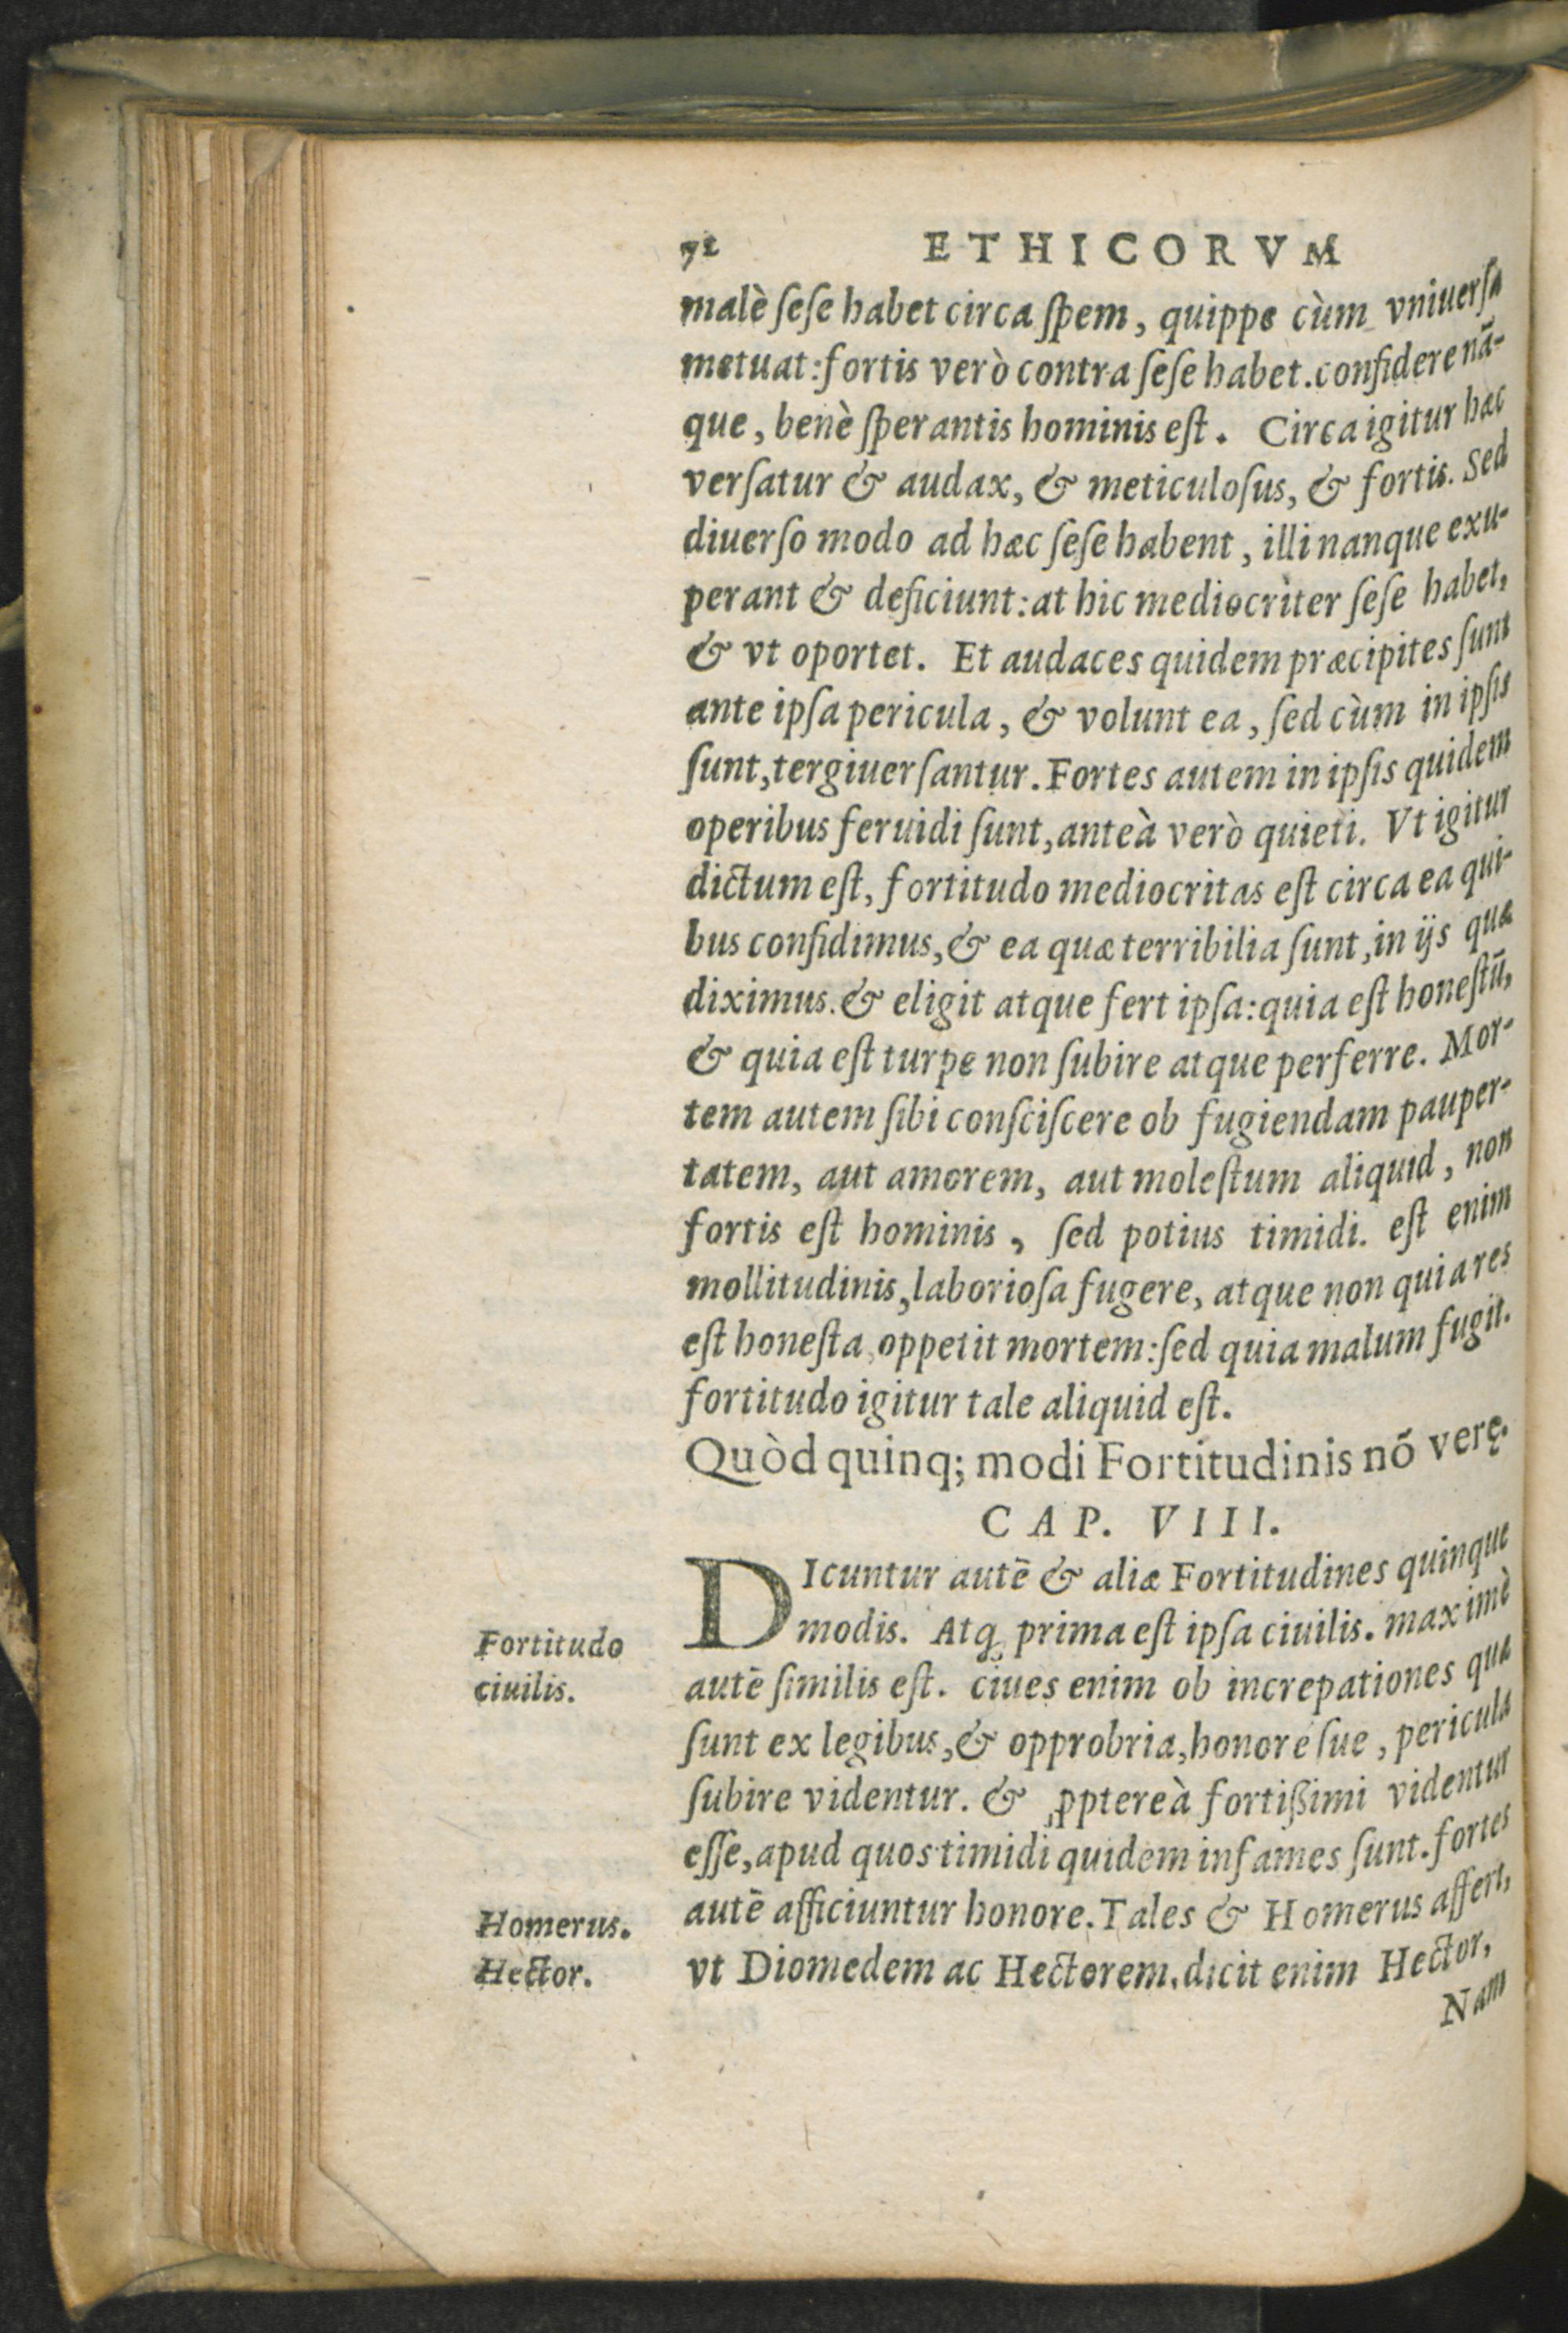 72 ETHICORVM
malè ſeſe habet circa ſpem, quippe cùm vniuerſa
metuat: fortis verò contra ſeſe habet. confidere nā-
que, benè ſperantis hominis eſt. Circa igitur hæc
verſatur & audax, & meticuloſus, & fortis. Sed
diuerſo modo ad hæc ſeſe habent, illi nanque exu-
perant & deficiunt: at hic mediocriter ſeſe habet,
& vt oportet. Et audaces quidem præcipites ſunt
ante ipſa pericula, & volunt ea, ſed cùm in ipſis
ſunt, tergiuerſantur. Fortes autem in ipſis quidem
operibus feruidi ſunt, anteà verò quieti. Vt igitur
dictum eſt, fortitudo mediocritas eſt circa ea qui-
bus confidimus, & ea quæ terribilia ſunt, in ijs quæ
diximus. & eligit atque fert ipſa: quia eſt honeſtū,
& quia eſt turpe non ſubire atque perferre. Mor-
tem autem ſibi conſciſcere ob fugiendam pauper-
tatem, aut amorem, aut moleſtum aliquid, non
fortis eſt hominis, ſed potius timidi. eſt enim
mollitudinis, laborioſa fugere, atque non quia res
eſt honeſta, oppetit mortem: ſed quia malum fugit.
fortitudo igitur tale aliquid eſt.
Quòd quinq; modi Fortitudinis nō verę.
CAP. VIII.
DIcuntur autē & aliæ Fortitudines quinque
modis. Atq; prima eſt ipſa ciuilis. maximè
Fortitudo
ciuilis.
autē ſimilis eſt. ciues enim ob increpationes quæ
ſunt ex legibus, & opprobria, honoréſue, pericula
ſubire videntur. & ꝓptereà fortißimi videntur
eſſe, apud quos timidi quidem infames ſunt. fortes
autē afficiuntur honore. Tales & Homerus affert,
Homerus.
vt Diomedem ac Hectorem. dicit enim Hector,
Hector.
Nam